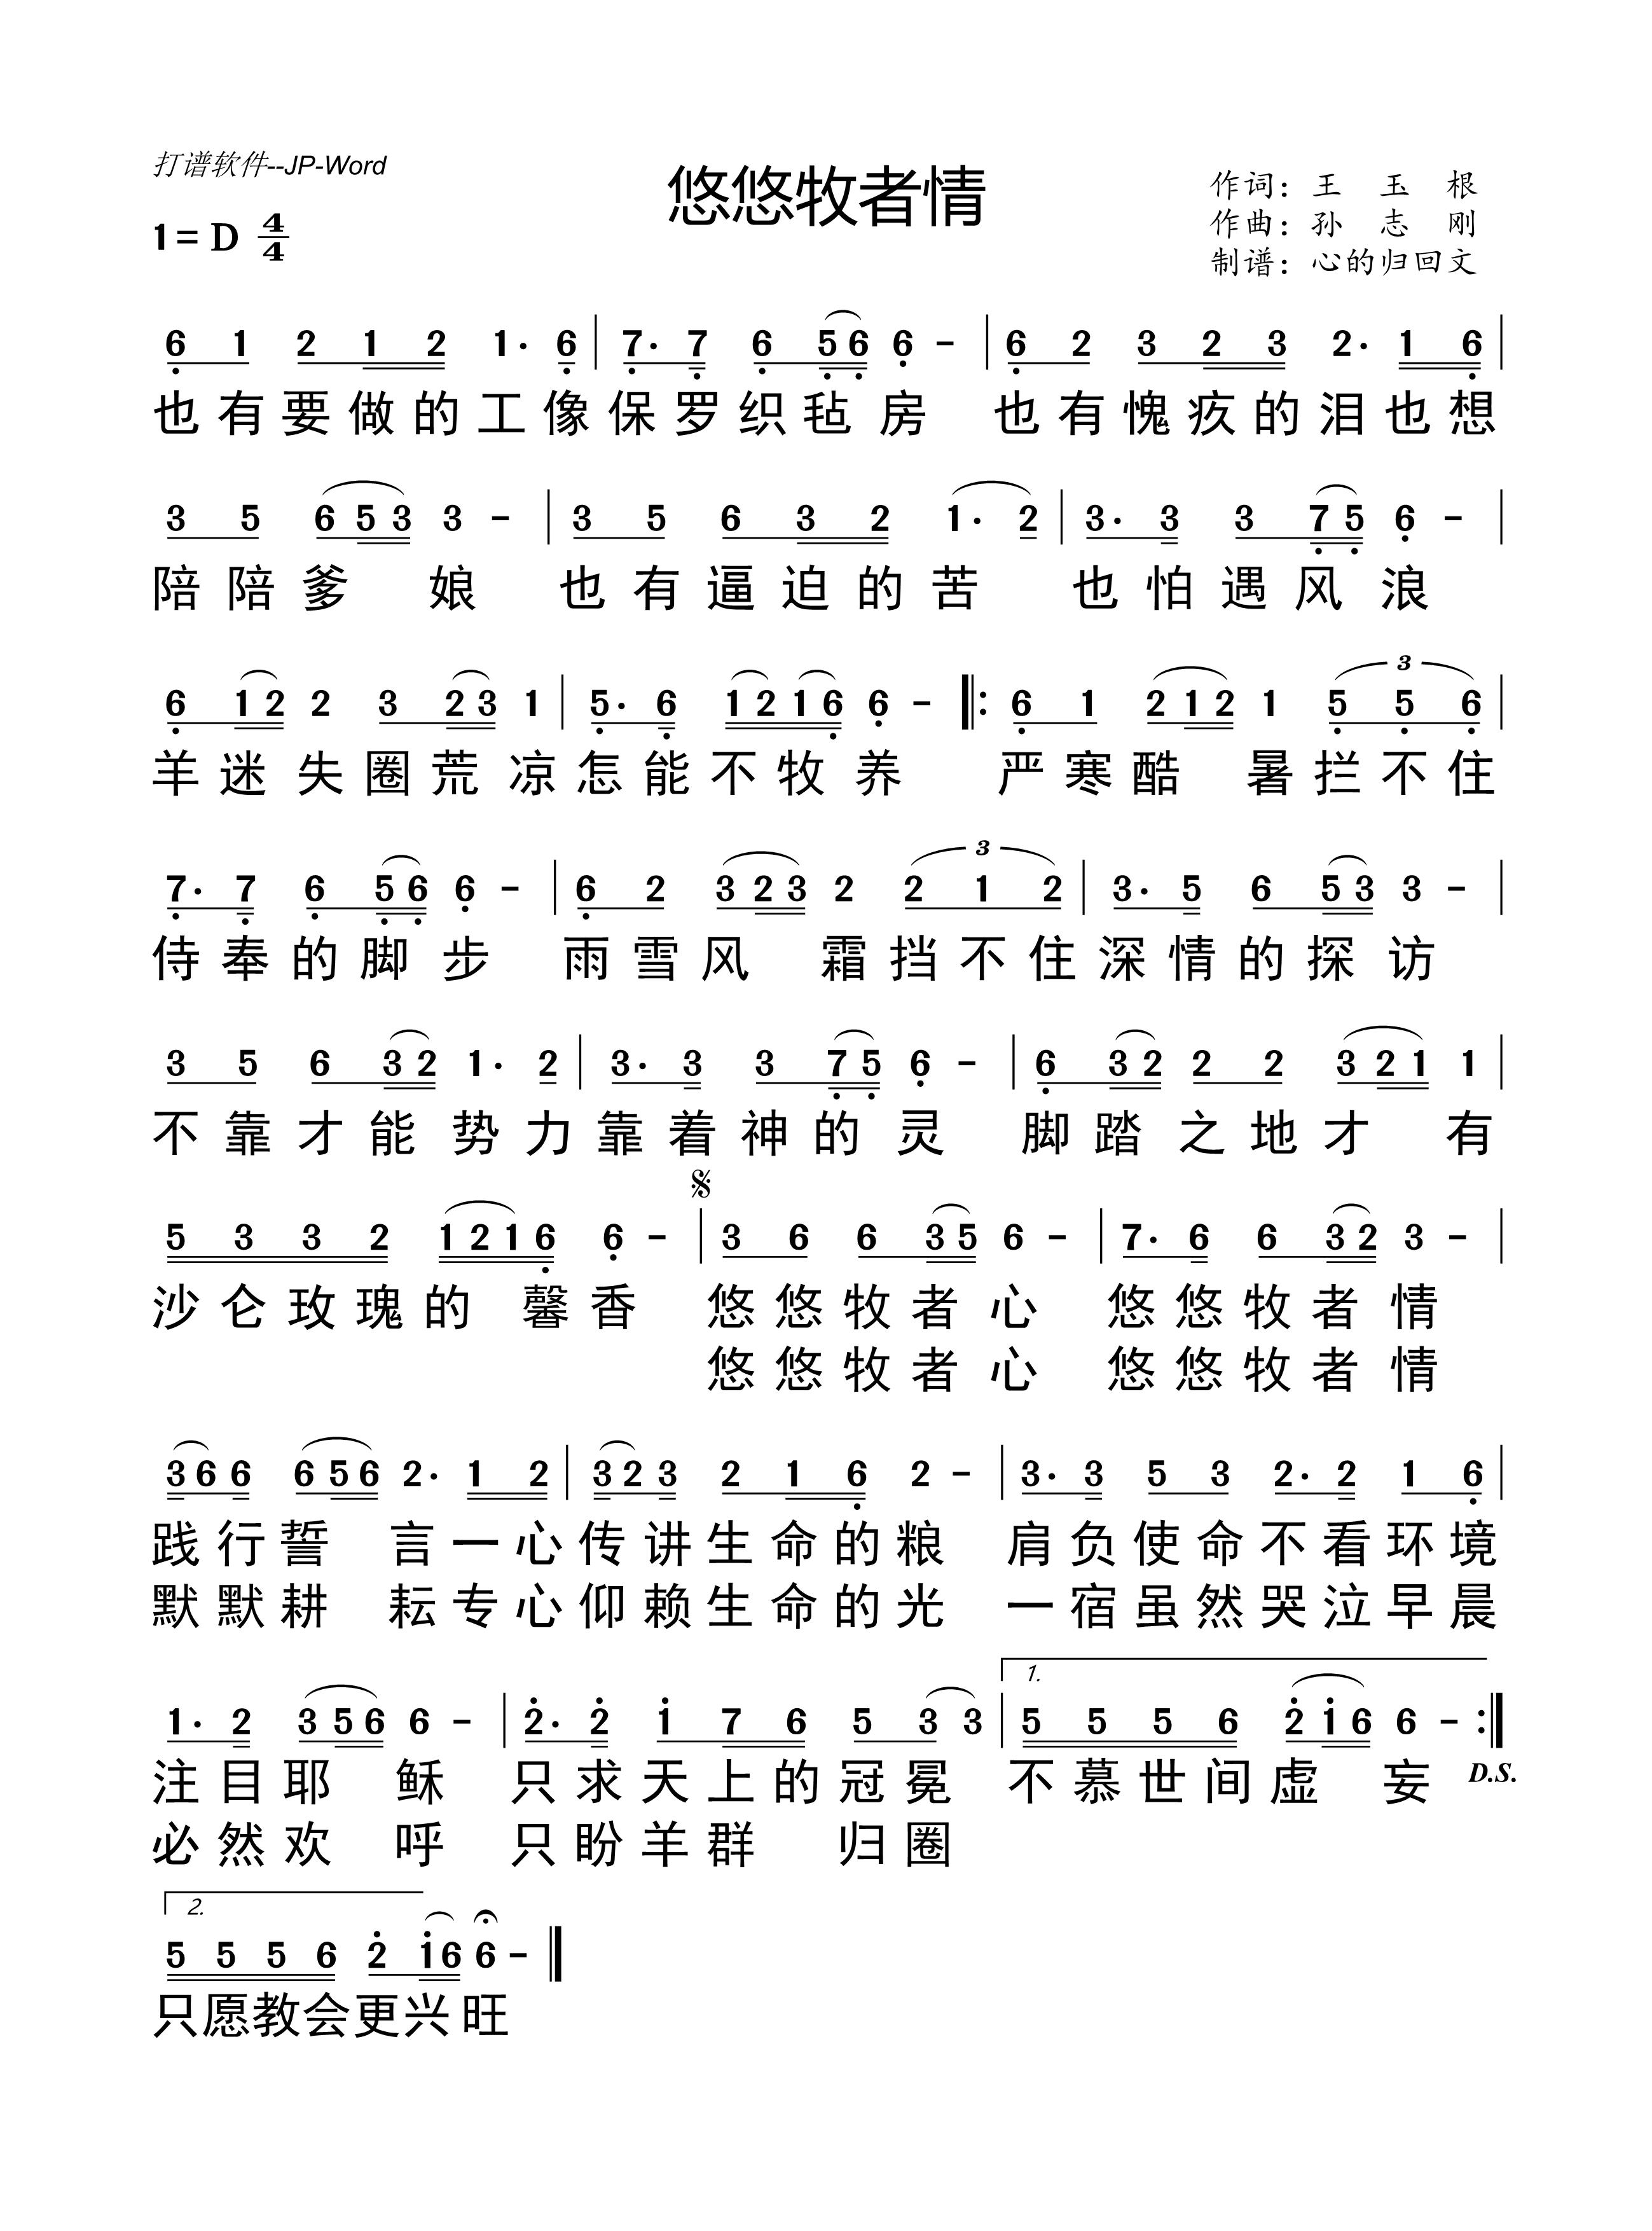 打谱软件--JP-Word
悠悠牧者情
作词：王 玉 根
1= D 4/4
作曲：孙 志 刚
制谱：心的归回文
6 1 2 1 2 1. 6 | 7. 7 6 5 6 6 - | 6 2 3 2 3 2. 1 6 |
也有要做的工像保罗织毡房 也有愧疚的泪也想
3 5 6 5 3 3 - | 3 5 6 3 2 1. 2 | 3. 3 3 7 5 6 - |
陪陪爹 娘 也有逼迫的苦 也怕遇风浪
6 1 2 2 3 2 3 1 | 5. 6 1 2 1 6 6 - |: 6 1 2 1 2 1 3 5 5 6 |
羊迷失圈荒凉怎能不牧养 严寒酷 暑拦不住
7. 7 6 5 6 6 - | 6 2 3 2 3 2 3 2 1 2 | 3. 5 6 5 3 3 - |
侍奉的脚步 雨雪风 霜挡不住深情的探访
3 5 6 3 2 1. 2 | 3. 3 3 7 5 6 - | 6 3 2 2 2 3 2 1 1 |
不靠才能势力靠着神的灵 脚踏之地才 有
5 3 3 2 1 2 1 6 6 - | 3 6 6 3 5 6 - | 7. 6 6 3 2 3 - |
沙仑玫瑰的 馨香 悠悠牧者心 悠悠牧者情
悠悠牧者心 悠悠牧者情
3 6 6 6 5 6 2. 1 2 | 3 2 3 2 1 6 2 - | 3. 3 5 3 2. 2 1 6 |
践行誓 言一心传讲生命的粮 肩负使命不看环境
默默耕 耘专心仰赖生命的光 一宿虽然哭泣早晨
1. 2 3 5 6 6 - | 2. 2 1 7 6 5 3 3 | 1. 5 5 5 6 2 1 6 6 - :|
注目耶 稣 只求天上的冠冕 不慕世间虚 妄 D.S.
必然欢 呼 只盼羊群 归圈
2. 5 5 5 6 2 1 6 6 - ‖
只愿教会更兴旺